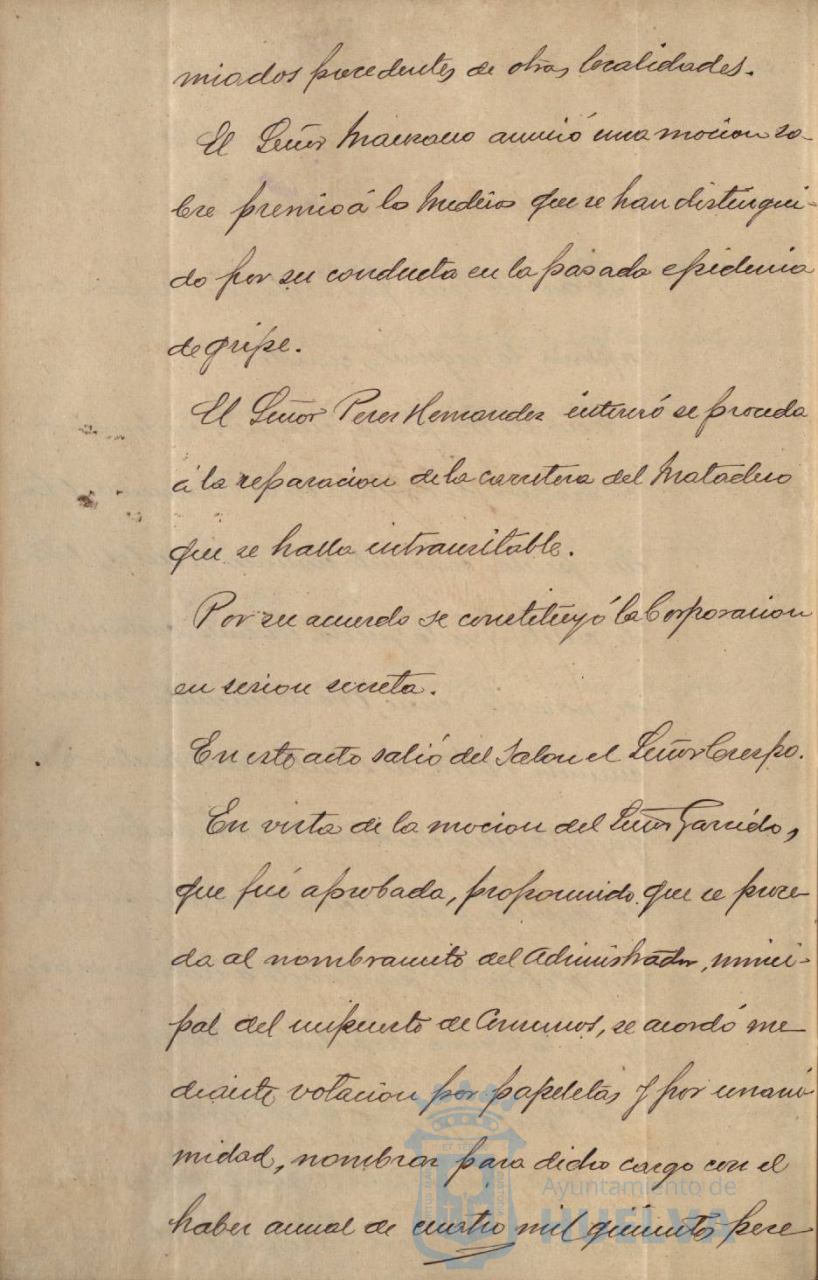 miados procedentes de otras localidades.
El Señor Manzano anunció una mocion so-
bre premio á los Medicos que se han distingui-
do por su conducta en la pasada epidemia
de gripe.
El Señor Perez Hernandez interesó se proceda
á la reparacion de la carretera del Matadero
que se halla intransitable.
Por su acuerdo se constituyó la Corporacion
en sesion secreta.
En este acto salió del Salon el Señor Crespo.
En vista de la mocion del Señor Garrido,
que fué aprobada, proponiendo que se proce-
da al nombramiento del Administrador, munici-
pal del impuesto de Consumos, se acordó me
diante votacion por papeletas y por unani
midad, nombrar para dicho cargo con el
haber anual de cuatro mil quinientas pese
Ayuntamiento de
HUELVA